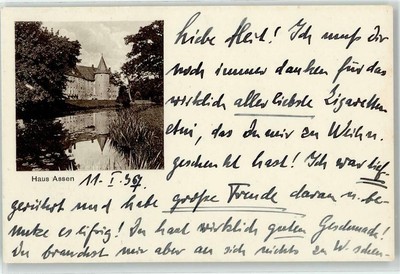 Liebe Meil! Ich muß dir
noch immer danken für das
wirklich allerliebste Zigaretten
etui, das Du mir zu Weihn.
geschenkt hast! Ich war tief
Haus Assen
11. I. 37.
gerührt und habe große Freude daran u. be-
nutze es eifrig! Du hast wirklich guten Geschmack!
Du brauchst mir aber an sich nichts zu W. schen-